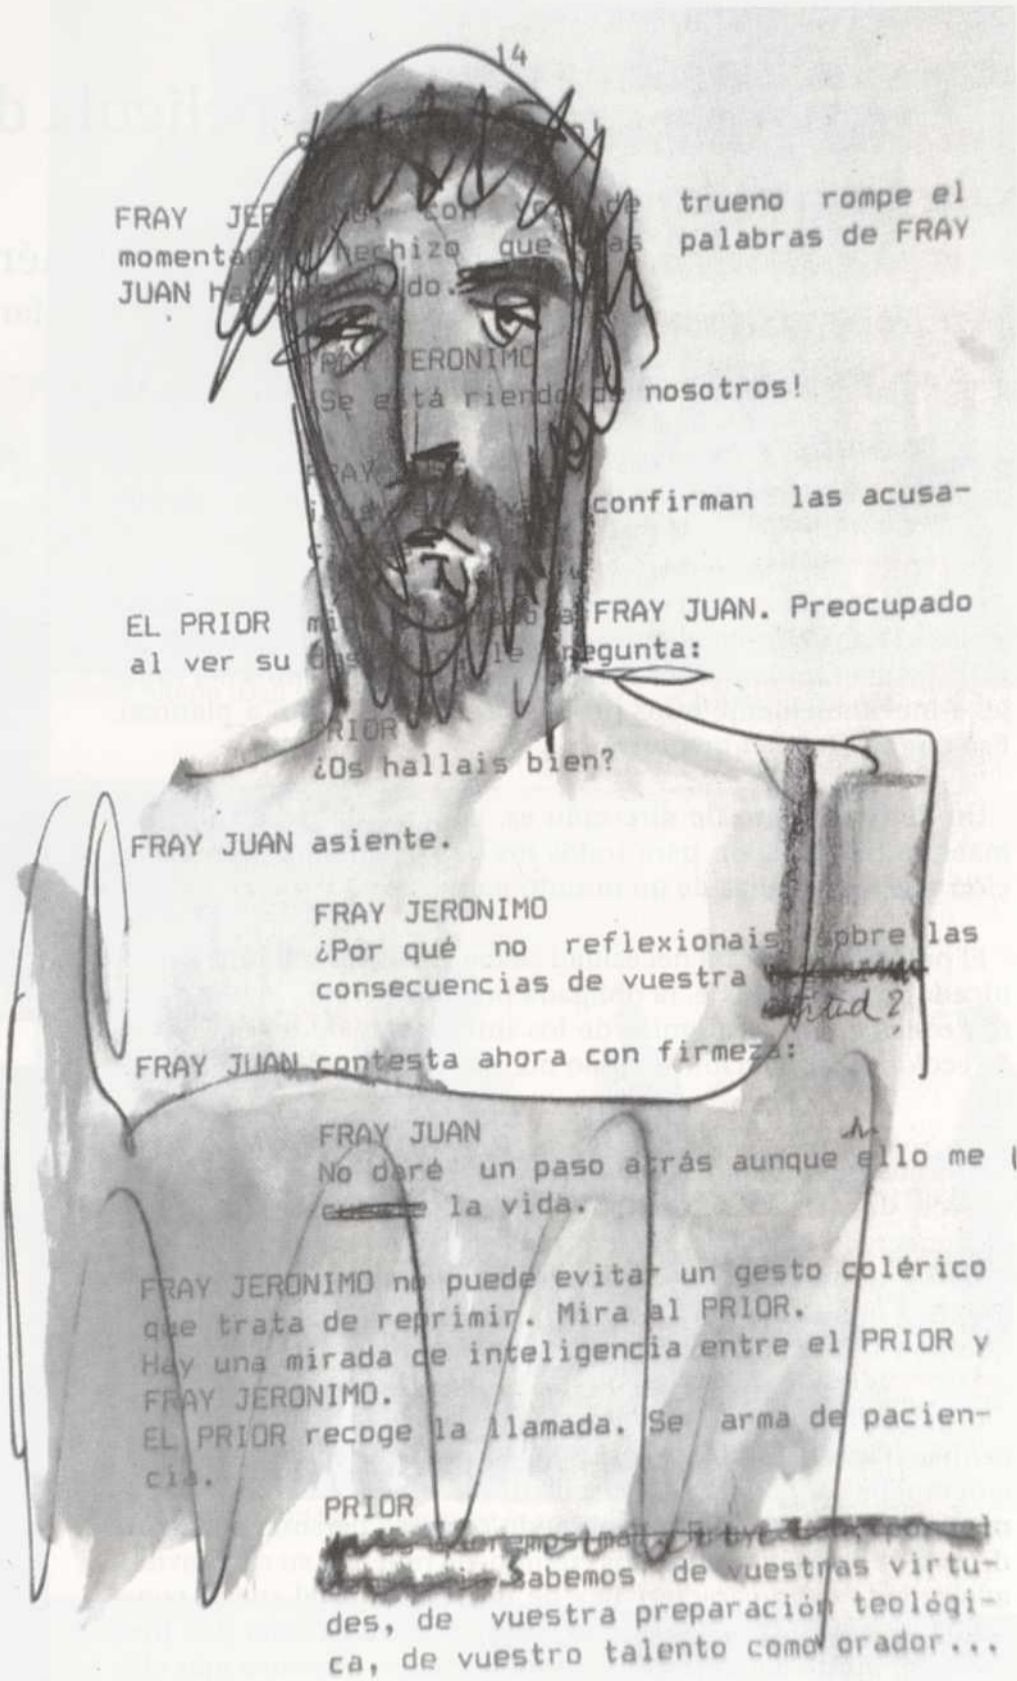 14
FRAY con de trueno rompe el
hechizo que palabras de FRAY
JUAN
FRAY JERONIMO
Se está riendo de nosotros!
FRAY
confirman las acusa-
EL PRIOR a FRAY JUAN. Preocupado
al ver su le pregunta:
PRIOR
¿Os hallais bien?
FRAY JUAN asiente.
FRAY JERONIMO
¿Por qué no reflexionais sobre las
consecuencias de vuestra
actitud?
FRAY JUAN contesta ahora con firmeza:
FRAY JUAN
No daré un paso atrás aunque ello me
cueste la vida.
FRAY JERONIMO no puede evitar un gesto colérico
que trata de reprimir. Mira al PRIOR.
Hay una mirada de inteligencia entre el PRIOR y
FRAY JERONIMO.
EL PRIOR recoge la llamada. Se arma de pacien-
cia.
PRIOR
Sabemos de vuestras virtu-
des, de vuestra preparación teológi-
ca, de vuestro talento como orador...